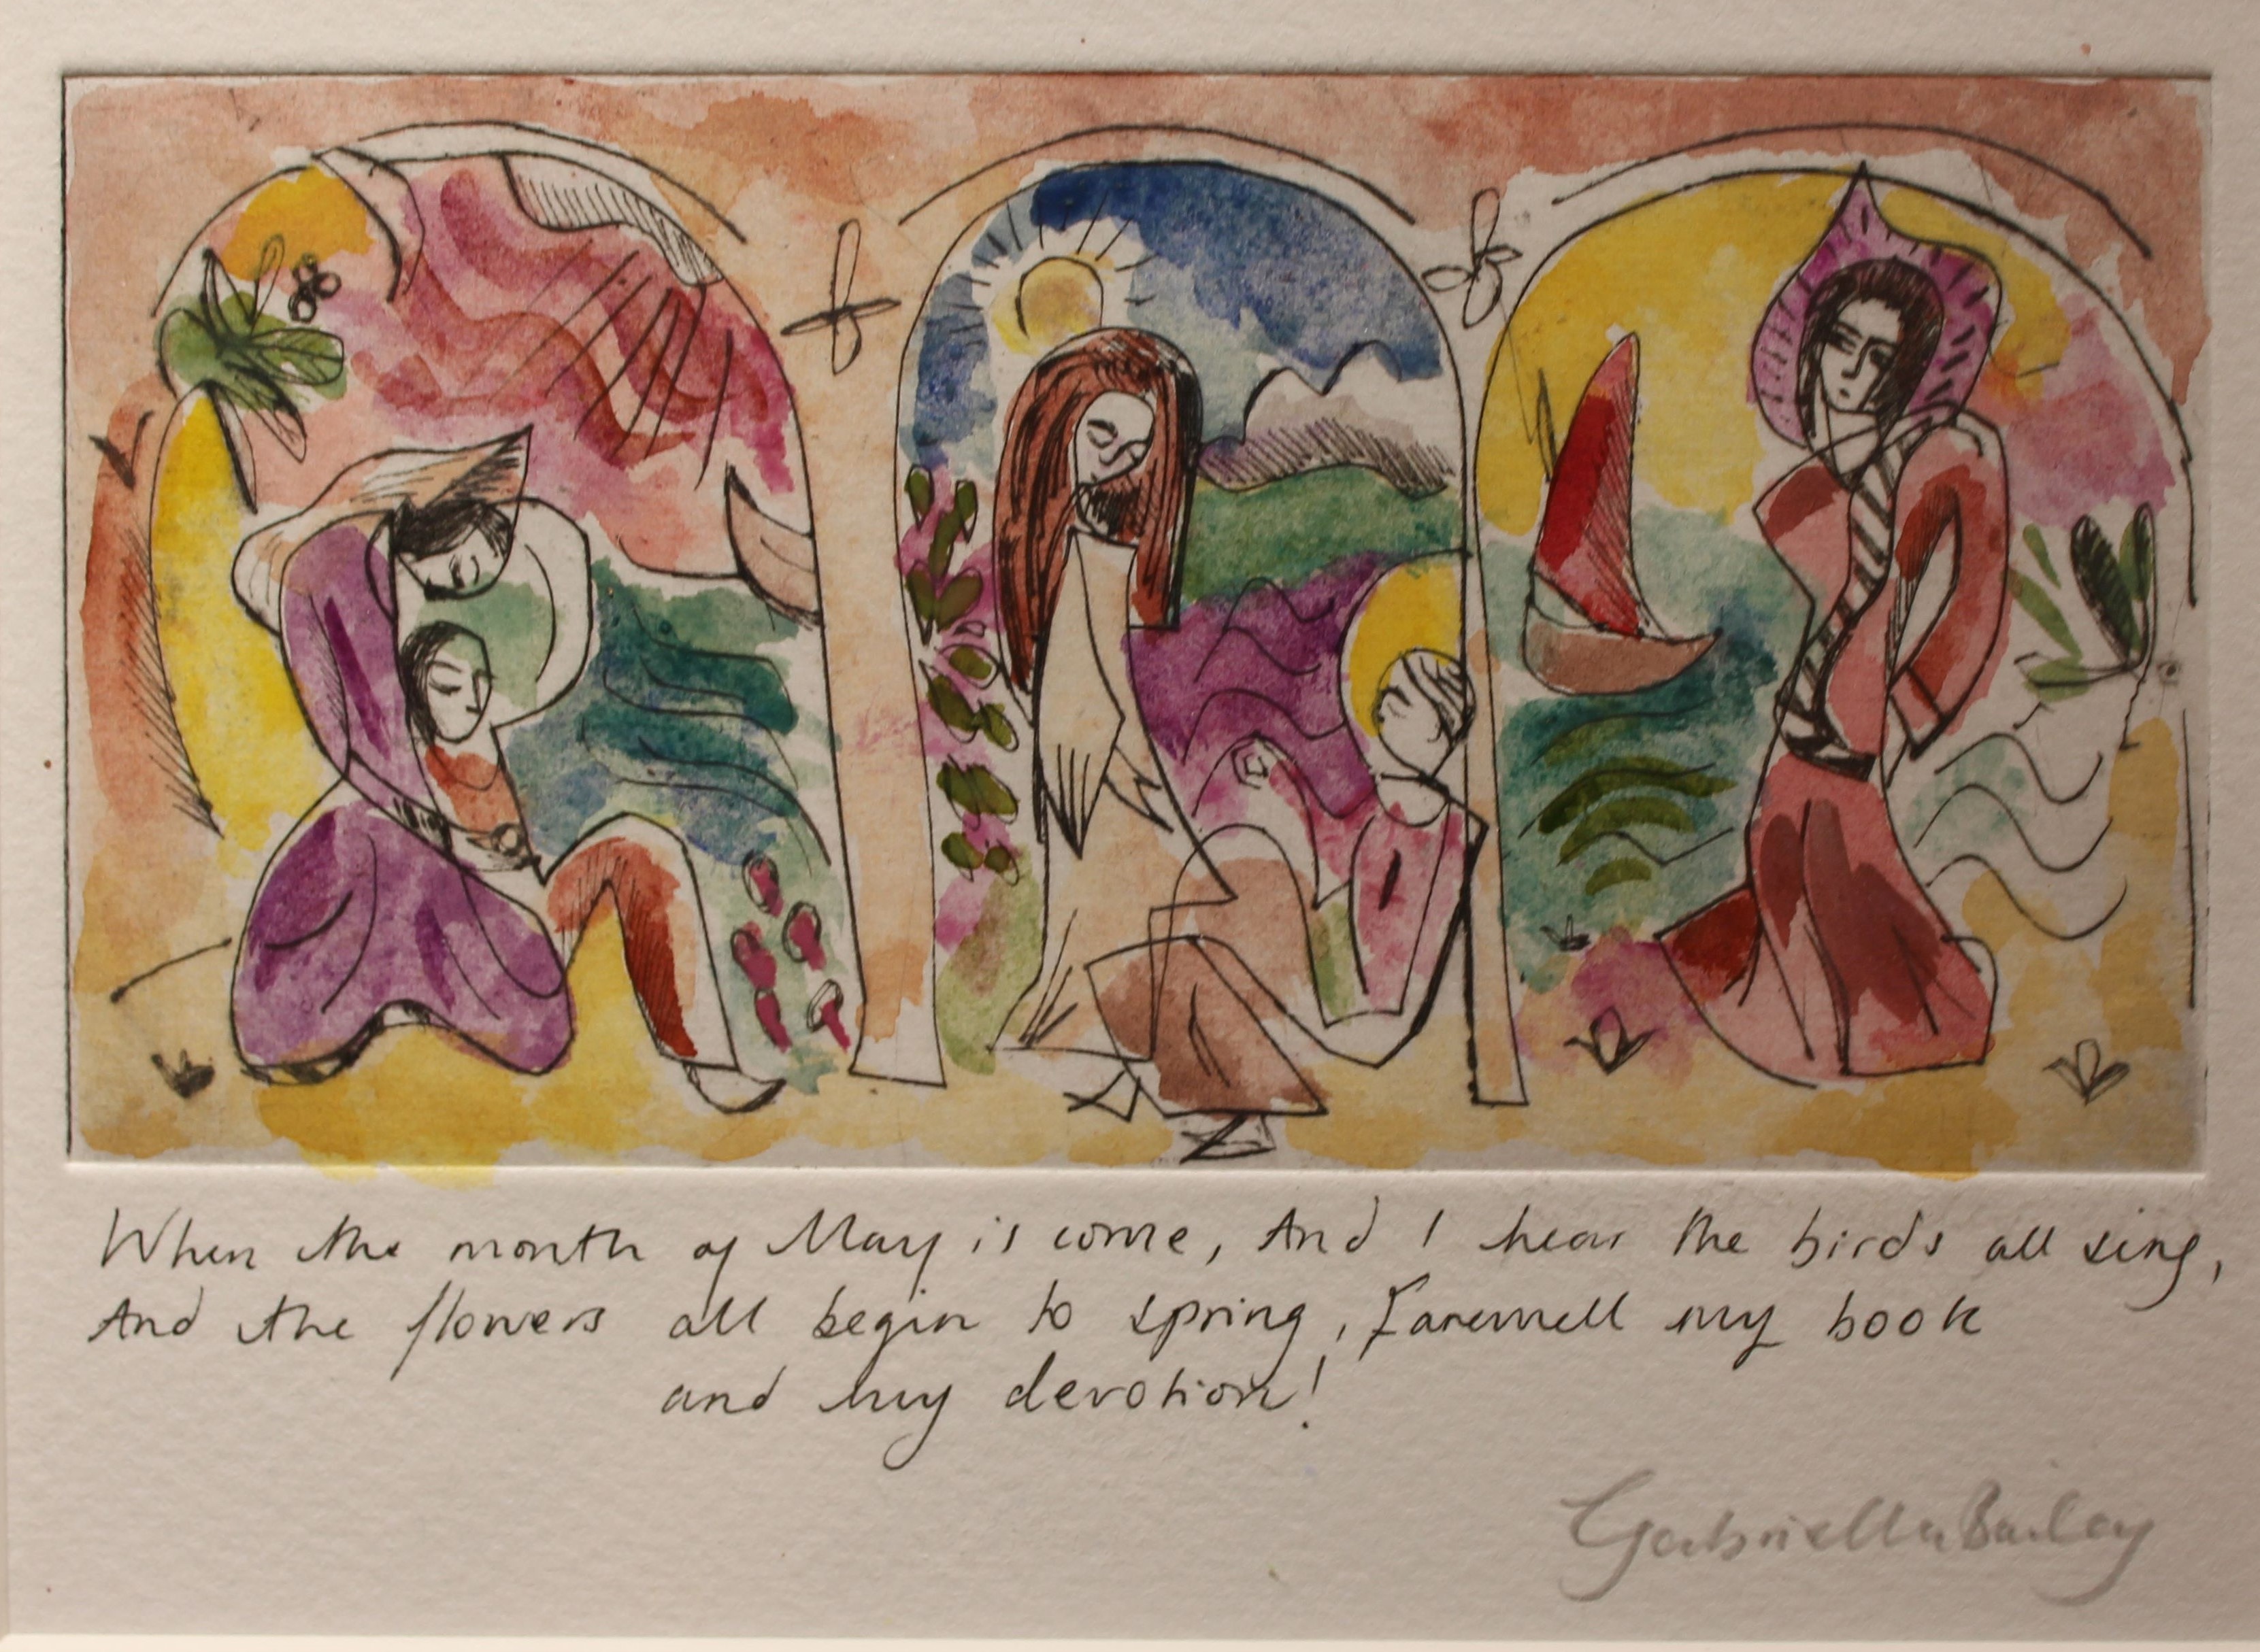 When the month of May is come, And I hear the birds all sing,
And the flowers all begin to spring, Farewell my book
and my devotion!
Gabriella Bailey